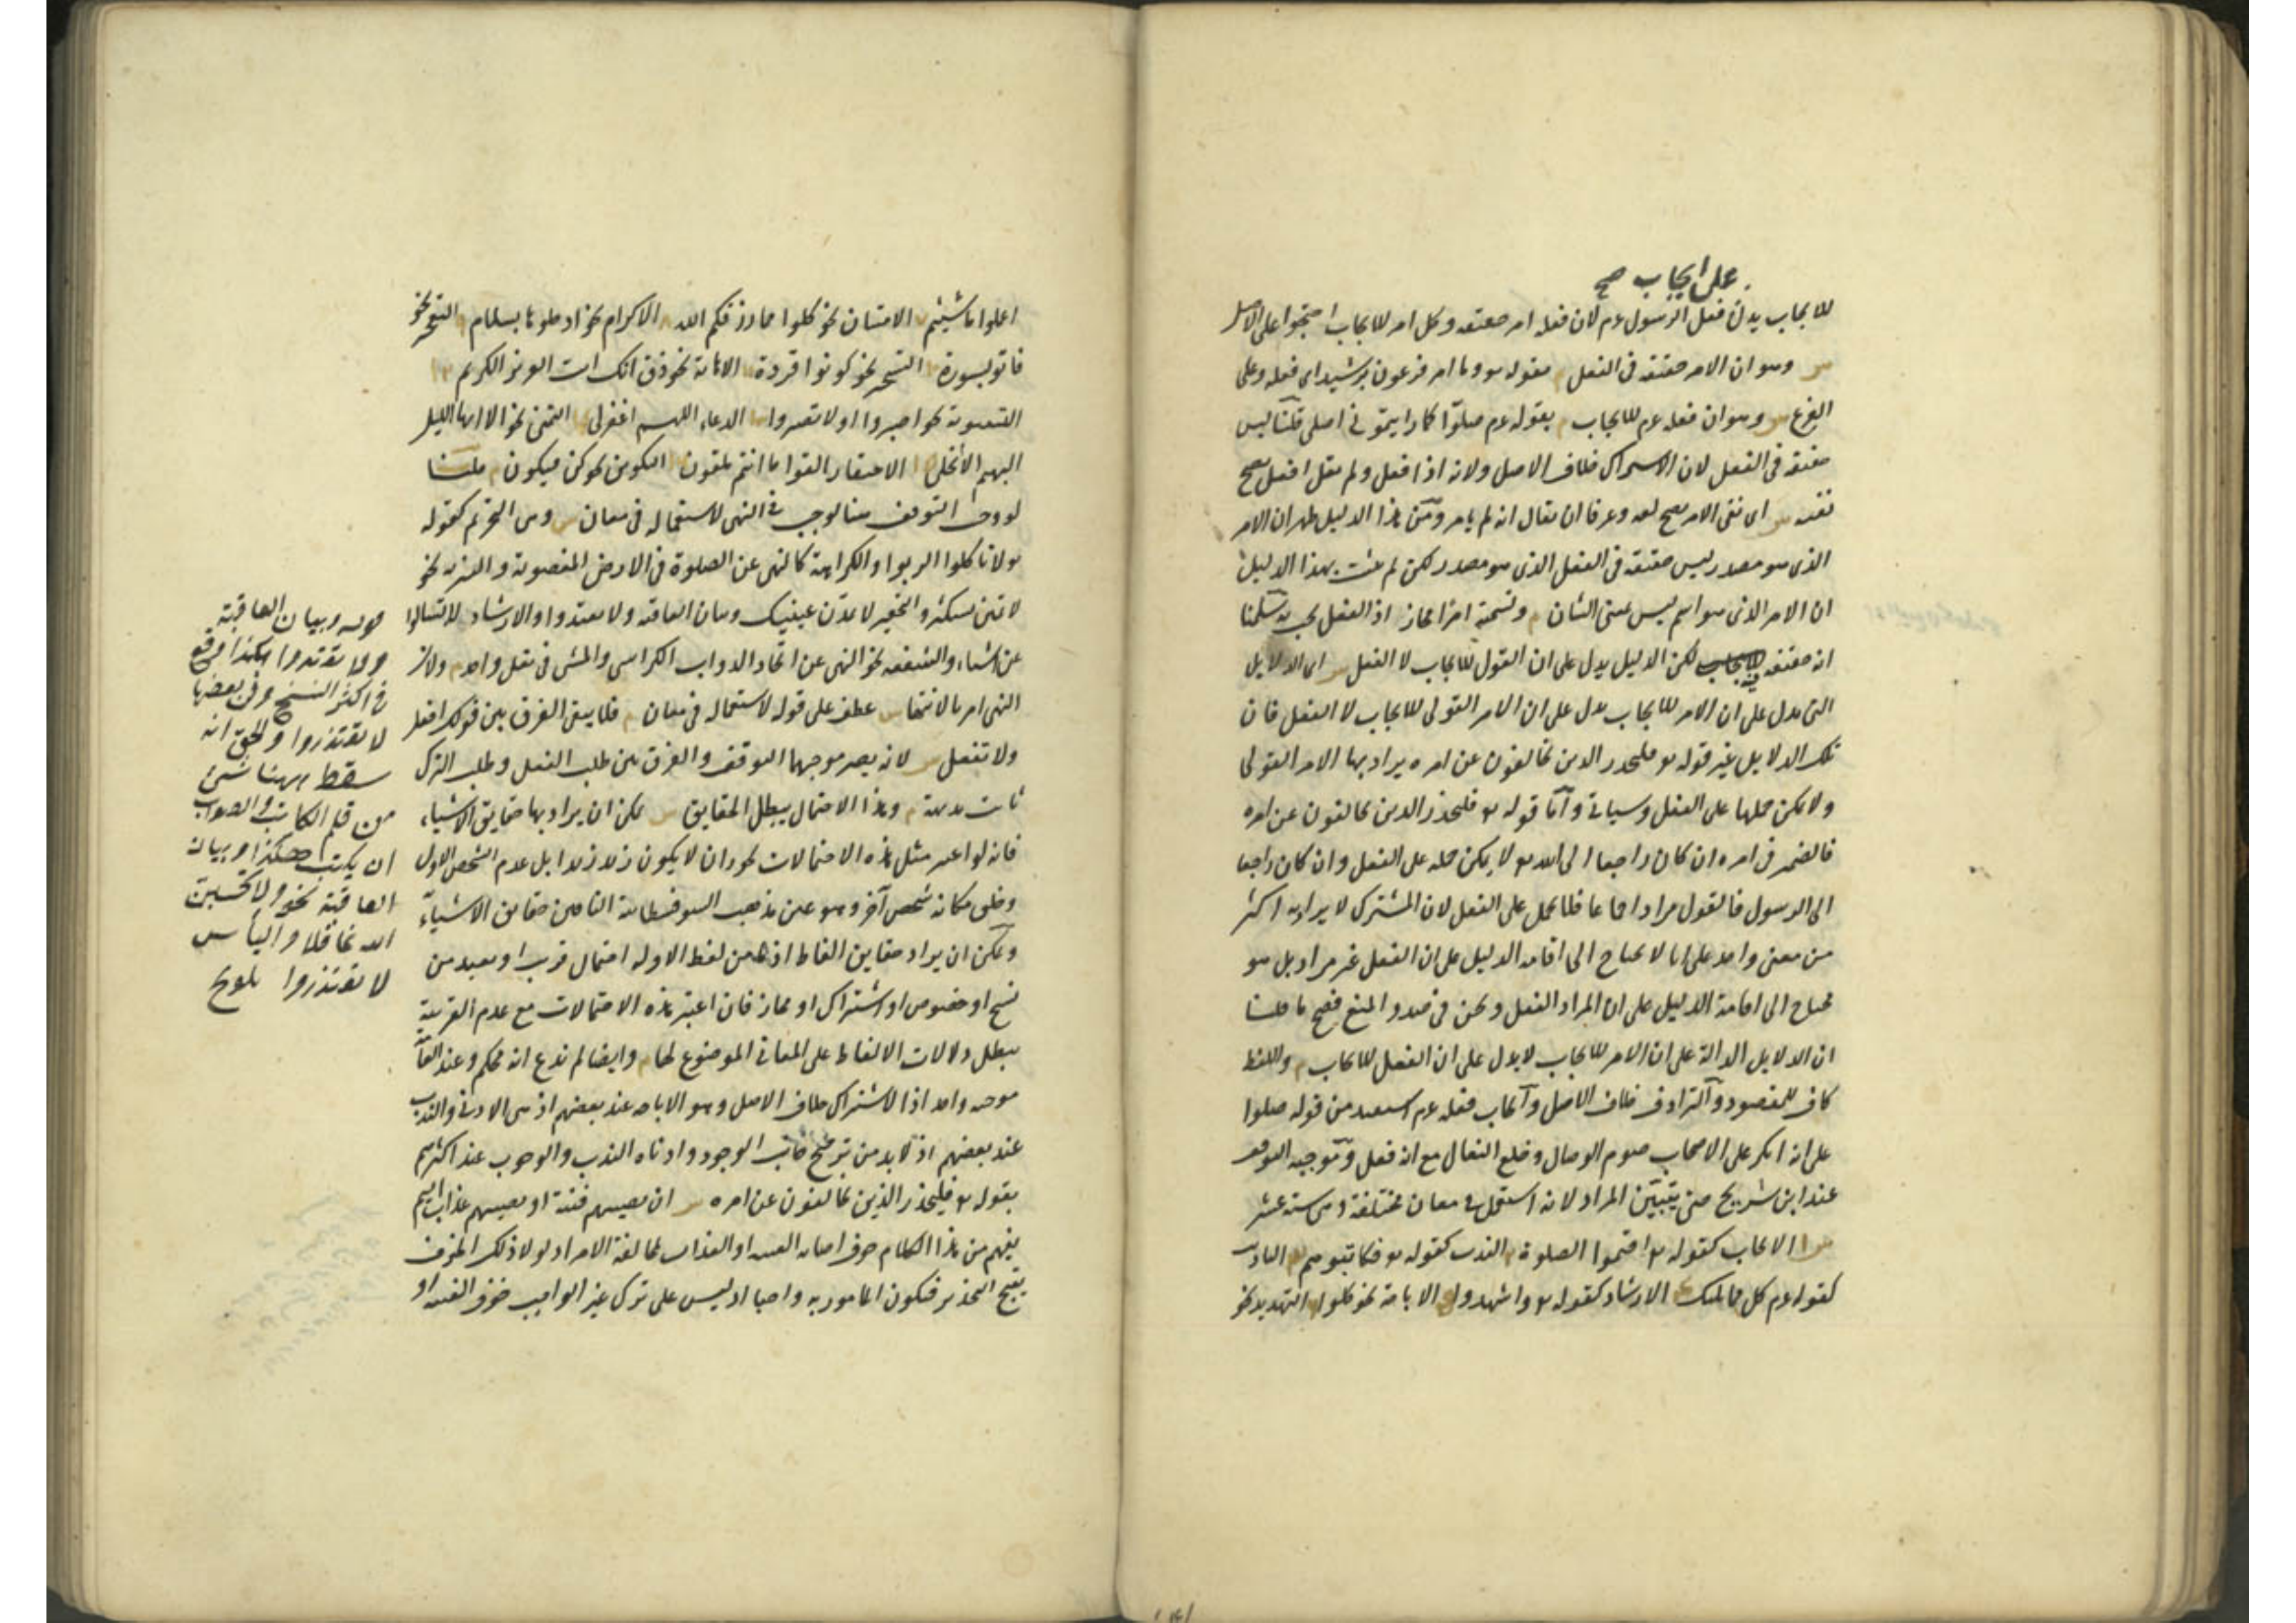 على ايجاب صح
للايجاب يدل فعل الرسول عم لان فعله امر حقيقة وكل امر للايجاب احتجوا على الاصل
س وهو ان الامر حقيقة في الفعل م بقوله تعـ وما امر فرعون برشيد اى فعله وعلى
الفرع س وهو ان فعله عم للايجاب م بقوله عم صلوا كما رايتمونى اصلى قلنا ليس
حقيقة في الفعل لان الاشتراك خلاف الاصل ولانه اذا فعل ولم يقل افعل يصح
نفيه س اى نفى الامر يصح لغة وعرفا ان يقال انه لم يامر ومن هذا الدليل ظهر ان الامر
الذى هو مصدر ليس حقيقة في الفعل الذى هو مصدر لكن لم يثبت بهذا الدليل
ان الامر الذى هو اسم ليس بمعنى الشان م وتسميته امرا مجاز اذ الفعل يجب به سلمنا
انه حقيقة فيه لكن الدليل يدل على ان القول للايجاب لا الفعل س اى الدلايل
التى تدل على ان الامر للايجاب تدل على ان الامر القولى للايجاب لا الفعل فان
تلك الدلايل غير قوله تعـ فليحذر الذين يخالفون عن امره يراد بها الامر القولى
ولا يمكن حملها على الفعل وسياتى واما قوله تعـ فليحذر الذين يخالفون عن امره
فالضمير في امره ان كان راجعا الى الله تعـ لا يمكن حمله على الفعل وان كان راجعا
الى الرسول فالقول مراد اجماعا فلا يحمل على الفعل لان المشترك لا يراد به اكثر
من معنى واحد على انا لا نحتاج الى اقامة الدليل على ان الفعل غير مراد بل هو
محتاج الى اقامة الدليل على ان المراد الفعل ونحن في صدد المنع فصح ما قلنا
ان الدلايل الدالة على ان الامر للايجاب لا يدل على ان الفعل للايجاب م واللفظ
كاف للمقصود والترادف خلاف الاصل وايجاب فعله عم استفيد من قوله صلوا
على انه انكر على الاصحاب صوم الوصال وخلع النعال مع انه فعل وموجبه التوقف
عند ابن شريح حتى يتبين المراد لانه استعمل في معان مختلفة وهى ستة عشر
س ١ الايجاب كقوله تعـ اقيموا الصلوة ٢ الندب كقوله تعـ فكاتبوهم ٣ التاديب
كقوله عم كل مما يليك ٤ الارشاد كقوله تعـ واشهدوا ٥ الاباحة نحو كلوا ٦ التهديد نحو
اعملوا ما شيتم ٧ الامتنان نحو كلوا مما رزقكم الله ٨ الاكرام نحو ادخلوها بسلام ٩ التعجيز نحو
فاتوا بسورة ١٠ التسخير نحو كونوا قردة ١١ الاهانة نحو ذق انك انت العزيز الكريم ١٢
التسوية نحو اصبروا او لا تصبروا ١٣ الدعاء اللهم اغفر لى ١٤ التمنى نحو الا ايها الليل
البهيم الا انجلى ١٥ الاحتقار القوا ما انتم ملقون ١٦ التكوين نحو كن فيكون م قلنا
لو وجب التوقف هنا لوجب في النهى لاستعماله في معان س وهى التحريم كقوله
تعـ لا تاكلوا الربوا والكراهة كالنهى عن الصلوة في الارض المغصوبة والتنزيه نحو
لا تمنن تستكثر والتحقير لا تمدن عينيك وبيان العاقبة ولا تعتدوا والارشاد لا تسالوا
عن اشياء والشفقة نحو النهى عن اتخاذ الدواب الكراسى والمشى في نعل واحد م ولان
النهى امر بالانتهاء س عطف على قوله لاستعماله في معان م فلا يبقى الفرق بين قولك افعل
ولا تفعل س لانه يصير موجبهما التوقف والفرق بين طلب الفعل وطلب الترك
ثابت بديهة م وهذا الاحتمال يبطل الحقايق س يمكن ان يراد بها حقايق الاشياء
فانه لو اعتبر مثل هذه الاحتمالات يجوز ان لا يكون زيد زيدا بل عدم الشخص الاول
وخلق مكانه شخص آخر وهو عين مذهب السوفسطائية النافين حقايق الاشياء
ويمكن ان يراد حقايق الفاظ اذ ما من لفظ الا وله احتمال قريب او بعيد من
نسخ او خصوص او اشتراك او مجاز فان اعتبر هذه الاحتمالات مع عدم القرينة
يبطل دلالات الالفاظ على المعانى الموضوع لها م وايضا لم ندع انه محكم وعند العامة
موجبه واحد اذا الاشتراك خلاف الاصل وهو الاباحة عند بعضهم اذ هى الادنى والندب
عند بعضهم اذ لابد من ترجيح جانب الوجود وادناه الندب والوجوب عند اكثرهم
بقوله تعـ فليحذر الذين يخالفون عن امره س ان تصيبهم فتنة او يصيبهم عذاب اليم
يفهم من هذا الكلام خوف اصابة الفتنة او العذاب لمخالفة الامر اذ لولا ذلك الخوف
يقبح التحذير فيكون المامور به واجبا اذ ليس على ترك غير الواجب خوف الفتنة او
قوله وبيان العاقبة
ولا تعتدوا هكذا وقع
في اكثر النسخ وفى بعضها
لا تعتذروا والحق انه
سقط ههنا شئ
من قلم الكاتب والصواب
ان يكتب هكذا وبيان
العاقبة نحو ولا تحسبن
الله غافلا والياس
لا تعتذروا تلويح